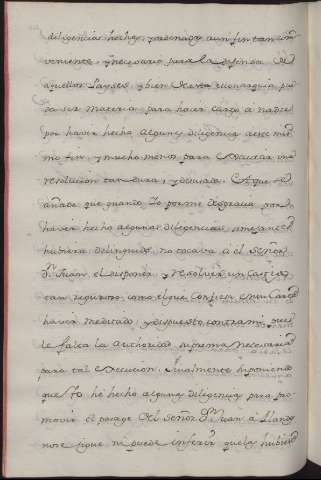 diligencias hechas, y ordenadas a un fin tan con
veniente, y necesario para la defensa de
aquellos Payses, y bien de esta Monarquia, pu
da ser materia para hacer cargo a nadie
por haver hecho alguna diligencia a este mis
mo fin, y mucho menos para executar una
resolucion tan dura, y
añade que quando Yo por me desgracia por
haver hecho algunas diligencias semejantes
hubiera delinquido, no tocava à el Señor
Dn. Juan el disponer, y resolver un castigo
tan riguroso, como el que confiesa en su Carta
haver meditado, y dispuesto contra mi, pues
le falta la authoridad suprema necesaria
para tal execucion. Igualmente suponiendo
que Yo he hecho alguna diligencia para pro
mover el pasage del Señor Dn. Juan à Fland
no se sigue ni puede inferir que la hubiese